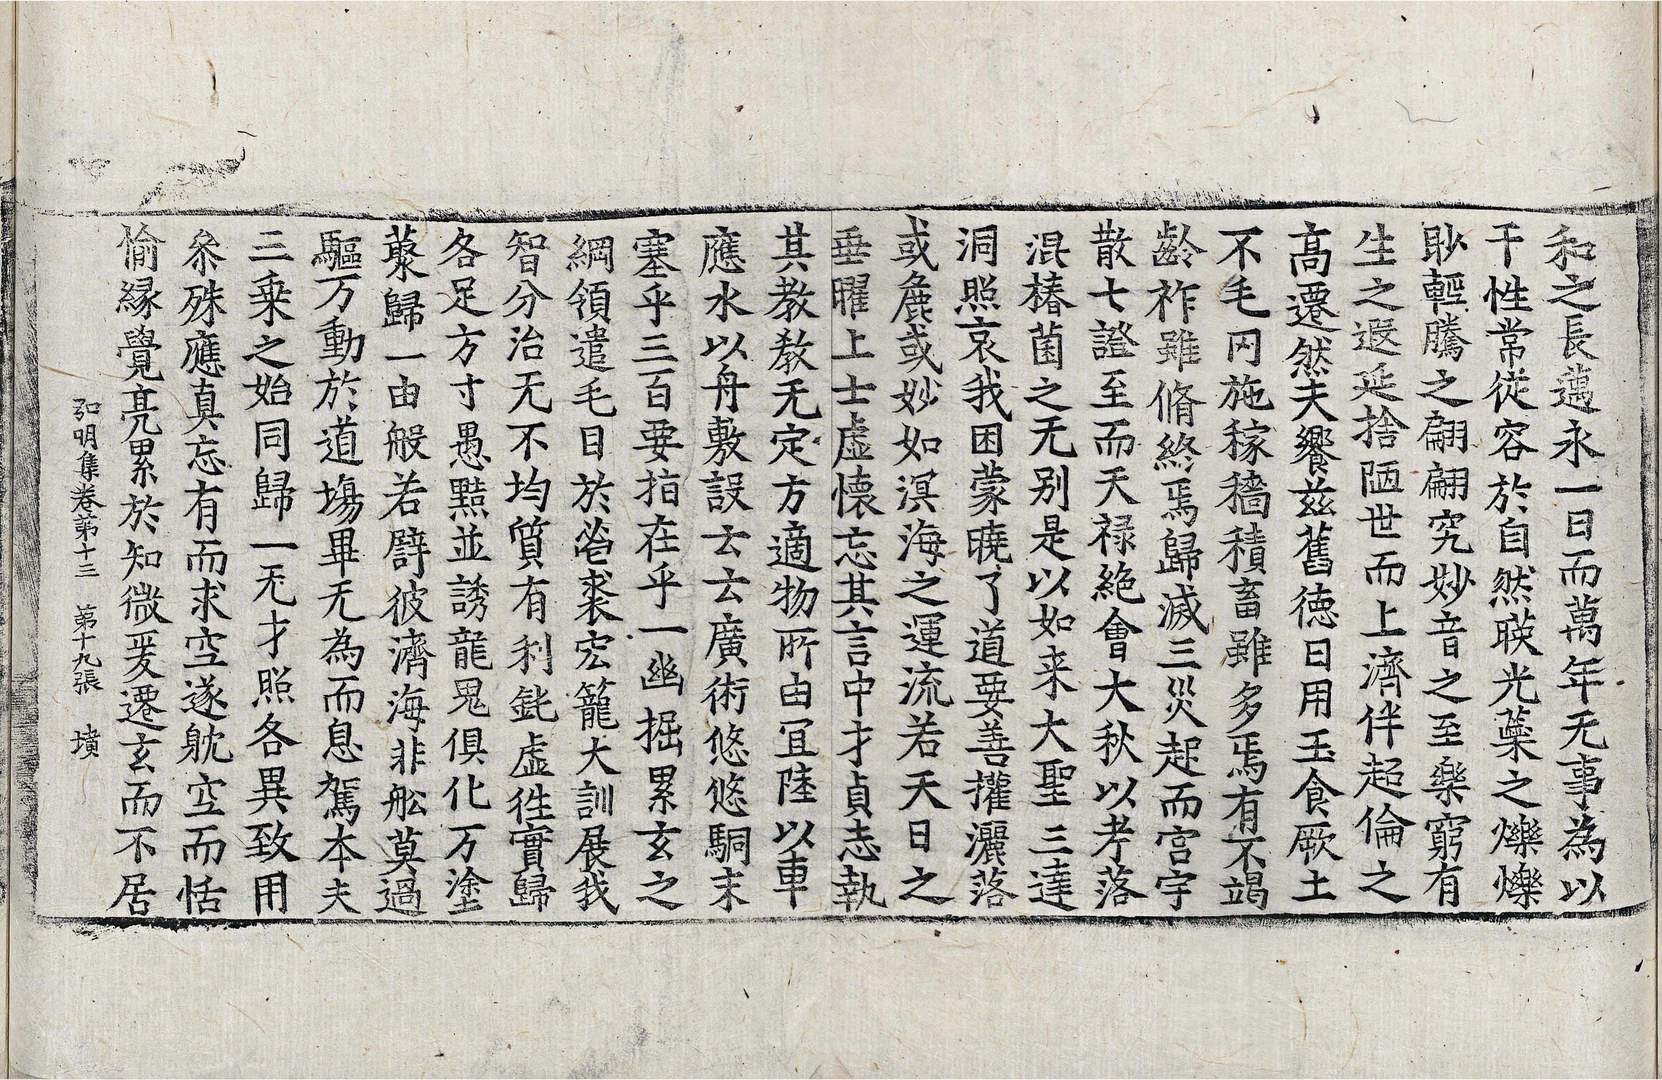 和之長邁永一日而萬年无事為以
干性常從容於自然暎光蘂之爍爍
眇輕騰之翩翩究妙音之至樂窮有
生之遐延捨陋世而上濟伴超倫之
髙遷然夫饗茲舊徳日用玉食厥土
不毛円施稼穡積畜雖多焉有不竭
齡祚雖脩終焉歸滅三災起而宫宇
散七證至而天禄絶會大秋以考落
混椿菌之无别是以如来大聖三達
洞照哀我困蒙曉了道要善權灑落
或麁或妙如溟海之運流若天日之
垂曜上士虚懷忘其言中才貞志執
其教教无定方適物所由冝陸以車
應水以舟敷設云云廣術悠悠駧末
塞乎三百要指在乎一幽掘累玄之
綱領遣毛目於裘宏籠大訓展我
智分治无不均質有利鈍虚徃實歸
各足方寸愚黠並誘龍鬼俱化万塗
藂歸一由般若譬彼濟海非舩莫過
驅万動於道塲畢无為而息駕本夫
三乗之始同歸一无才照各異致用
叅殊應真忘有而求空遂躭空而恬
愉緣覺亮累於知微爰遷玄而不居
弘明集卷第十三 第十九張 墳